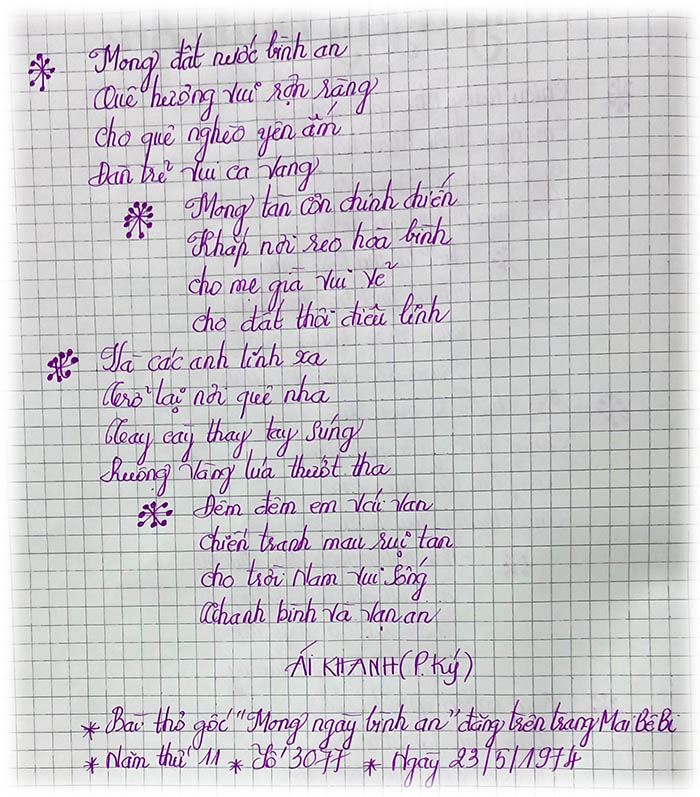 Mong đất nước bình an
Quê hương vui rộn ràng
Cho quê nghèo yên ấm
Đàn trẻ vui ca vang
Mong tàn cơn chinh chiến
Khắp nơi reo hòa bình
Cho mẹ già vui vẻ
Cho đất thôi điêu linh
Và các anh lính xa
Trở lại nơi quê nhà
Tay cày thay tay súng
Ruộng vàng lúa thướt tha
Đêm đêm em vái van
Chiến tranh mau rụi tàn
Cho trời Nam vui sống
Thanh bình và vạn an
ÁI KHANH (P. Ký)
* Bài thơ gốc "Mong ngày bình an" đăng trên trang Mai Bê Bi
* Năm thứ 11 * Số 3077 * Ngày 23/5/1974